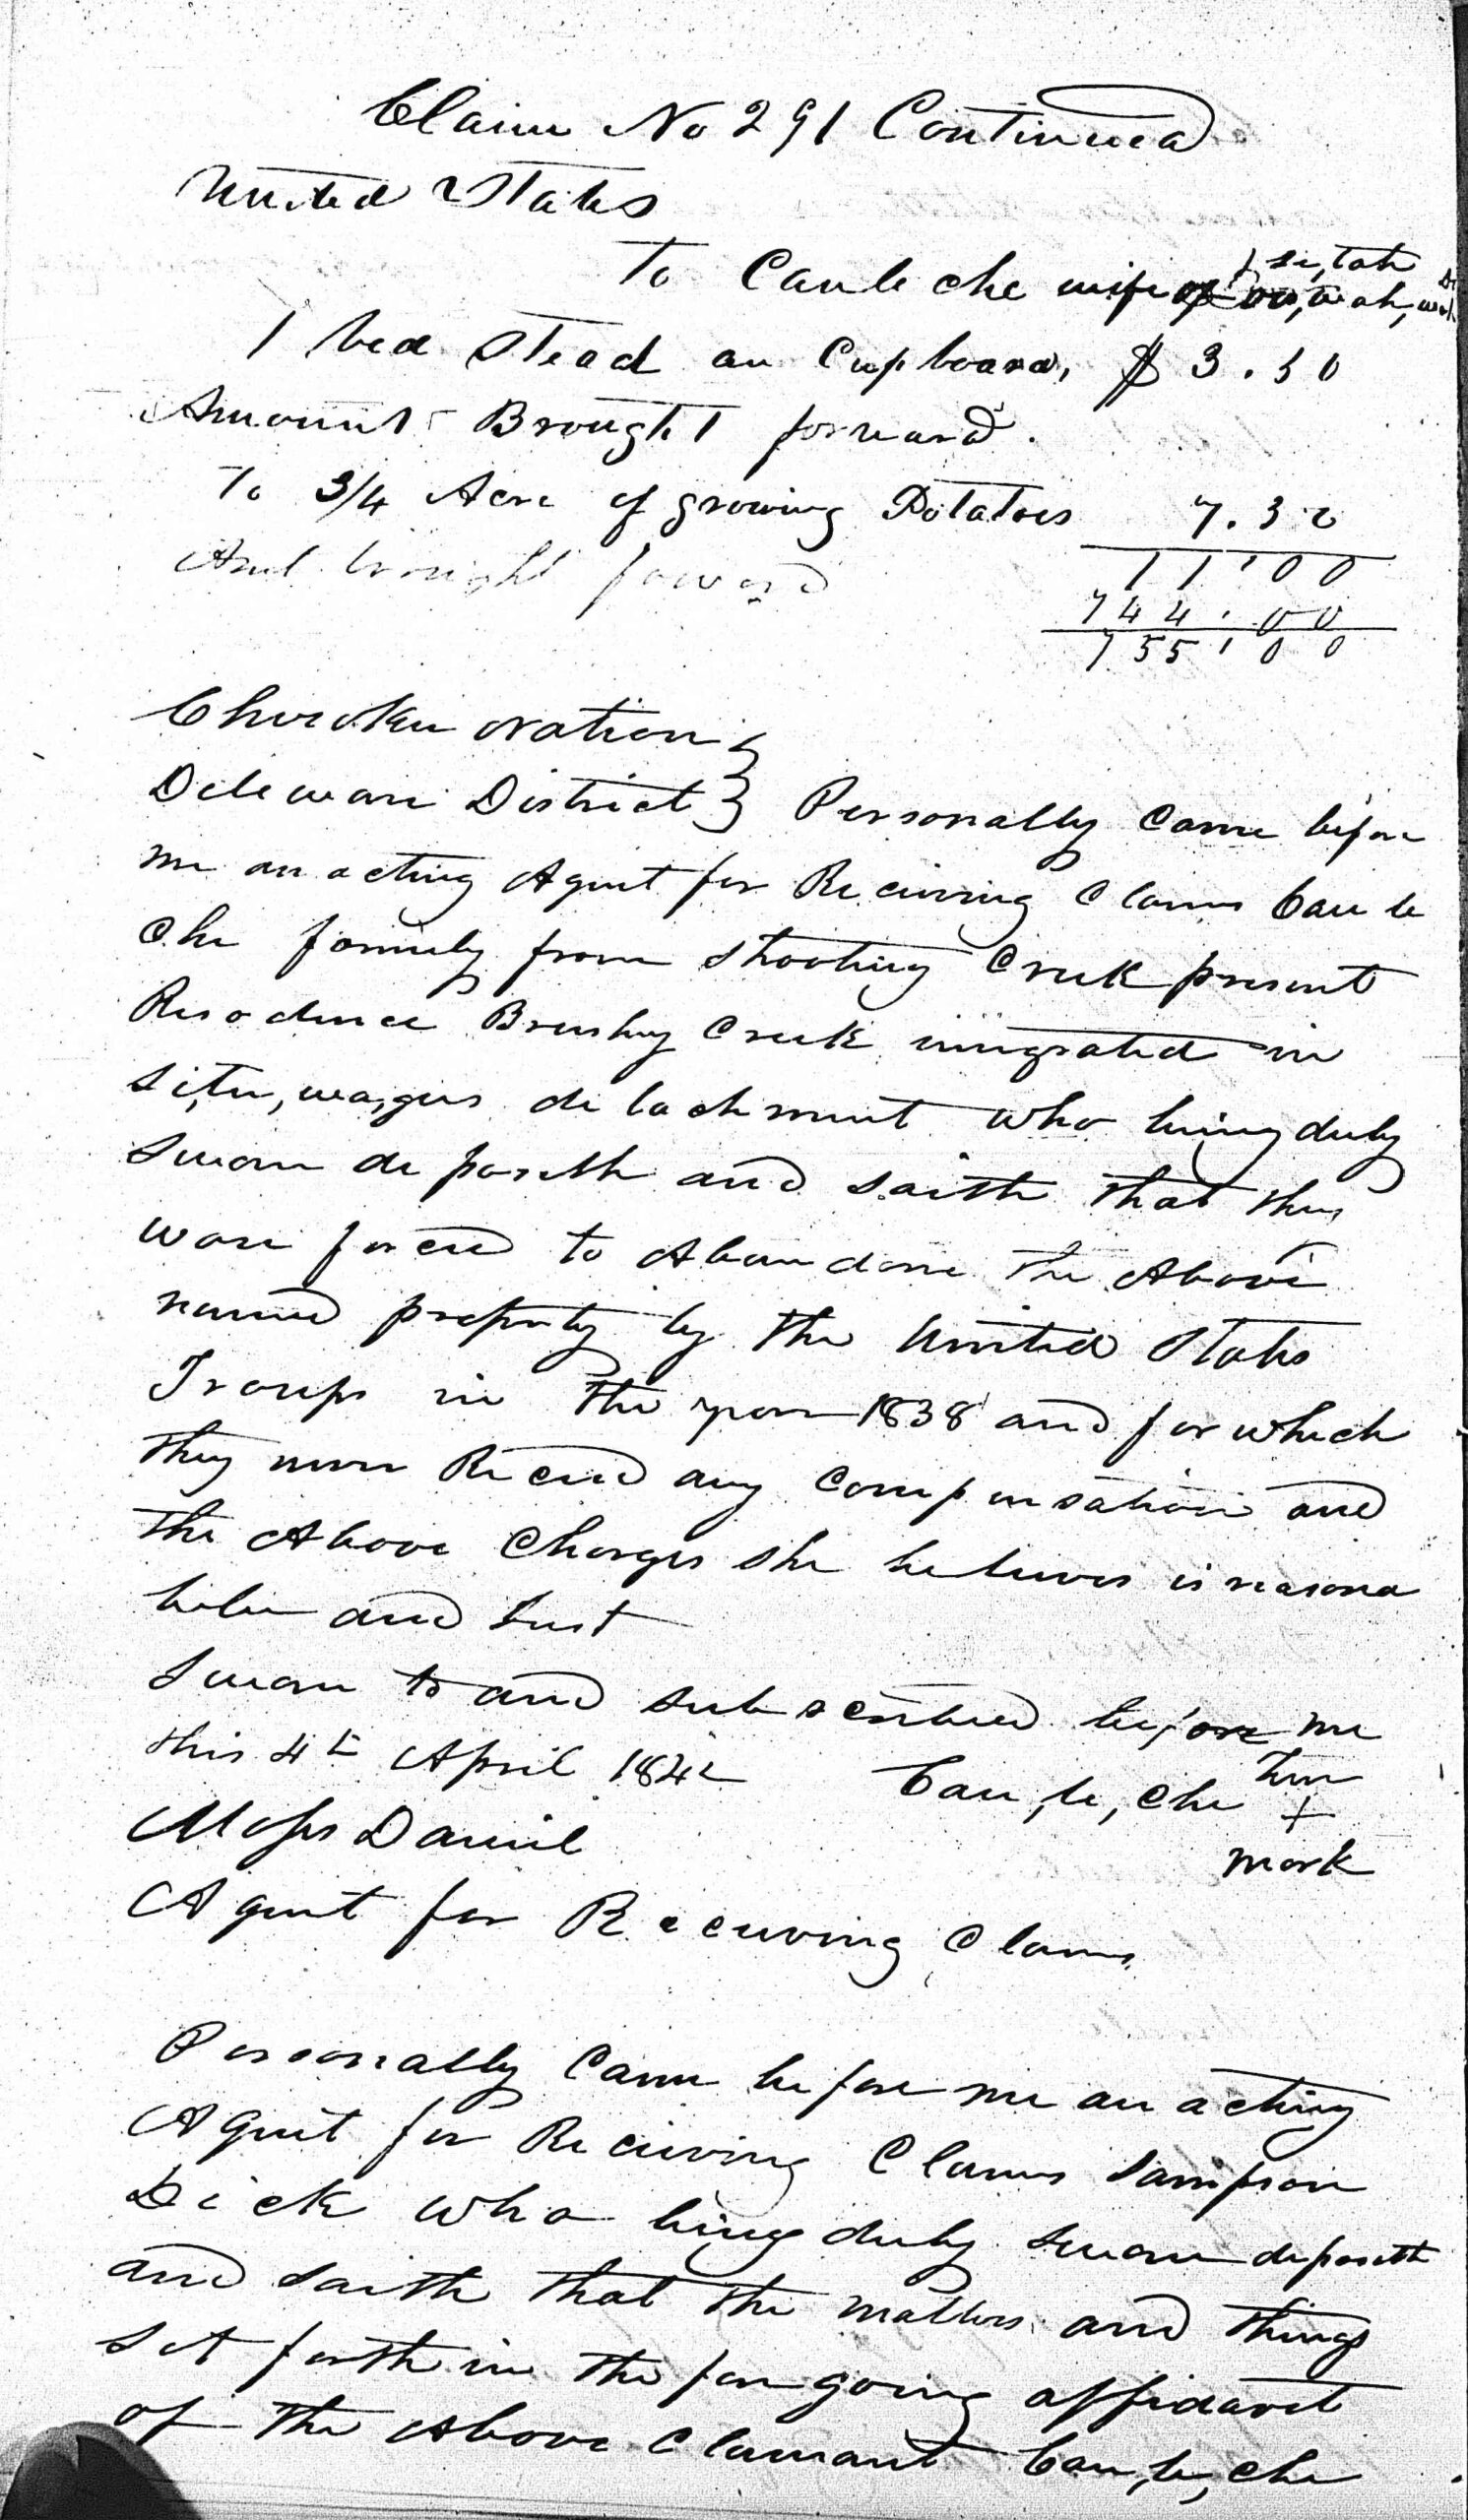 Claim No 291 Continued
United States
To Caule che wife of
1 bed Stead an Cupboard, $ 3.50
Amount Brought forward.
To 3/4 Acre of growing Potatoes 7.50
11.00
Amt brought foward 744.00
755.00
Cherokee Nation }
Deleware District } Personally Came before
me an acting Agent for Receiving Claims Cau le
che formerly from Shooting Creek present
Resadence Brushy Creek imigrated in
Si,tu,wa,gees detachment who being duly
Sworn deposeth and saith that they
ware forced to Abandone the Above
named property by the United States
Troops in the year 1838 and for which
they never Received any compensation and
the Above Charges she believes is reasona
bile and Just
Sworn to and subscribed before me
this 4th April 1842 Cau,le,che her
+
mark
Moses Daniel
Agent for Receiving Claims
Personally Came before me an acting
Agent for Receiving Claims Sampson
Dick who being duly sworn deposeth
and saith that the matters and things
set forth in the foregoing affidavit
of the Above Claimant Cau,le,che